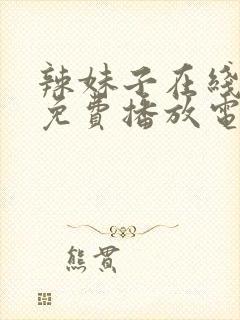 辣妹子在线
免費播放電
熊貫